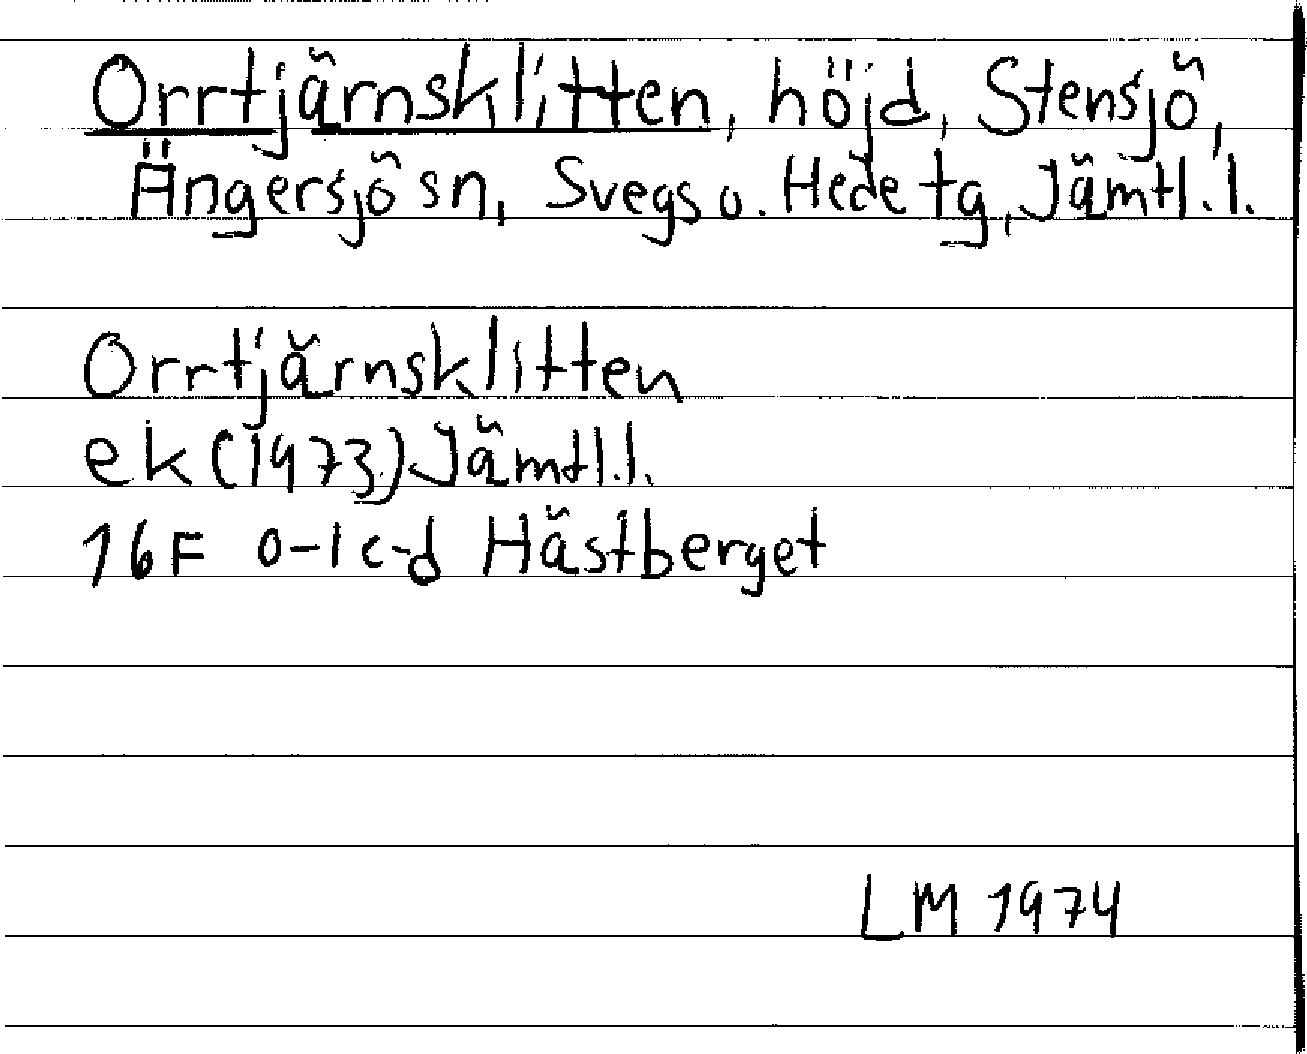 Orrtjärnsklitten, höjd, Stensjö,
Ängersjö sn, Svegs o. Hede tg, Jämtl. l.
Orrtjärnsklitten
ek (1973) Jämtl. l.
16F 0-1 c-d Hästberget
LM 1974